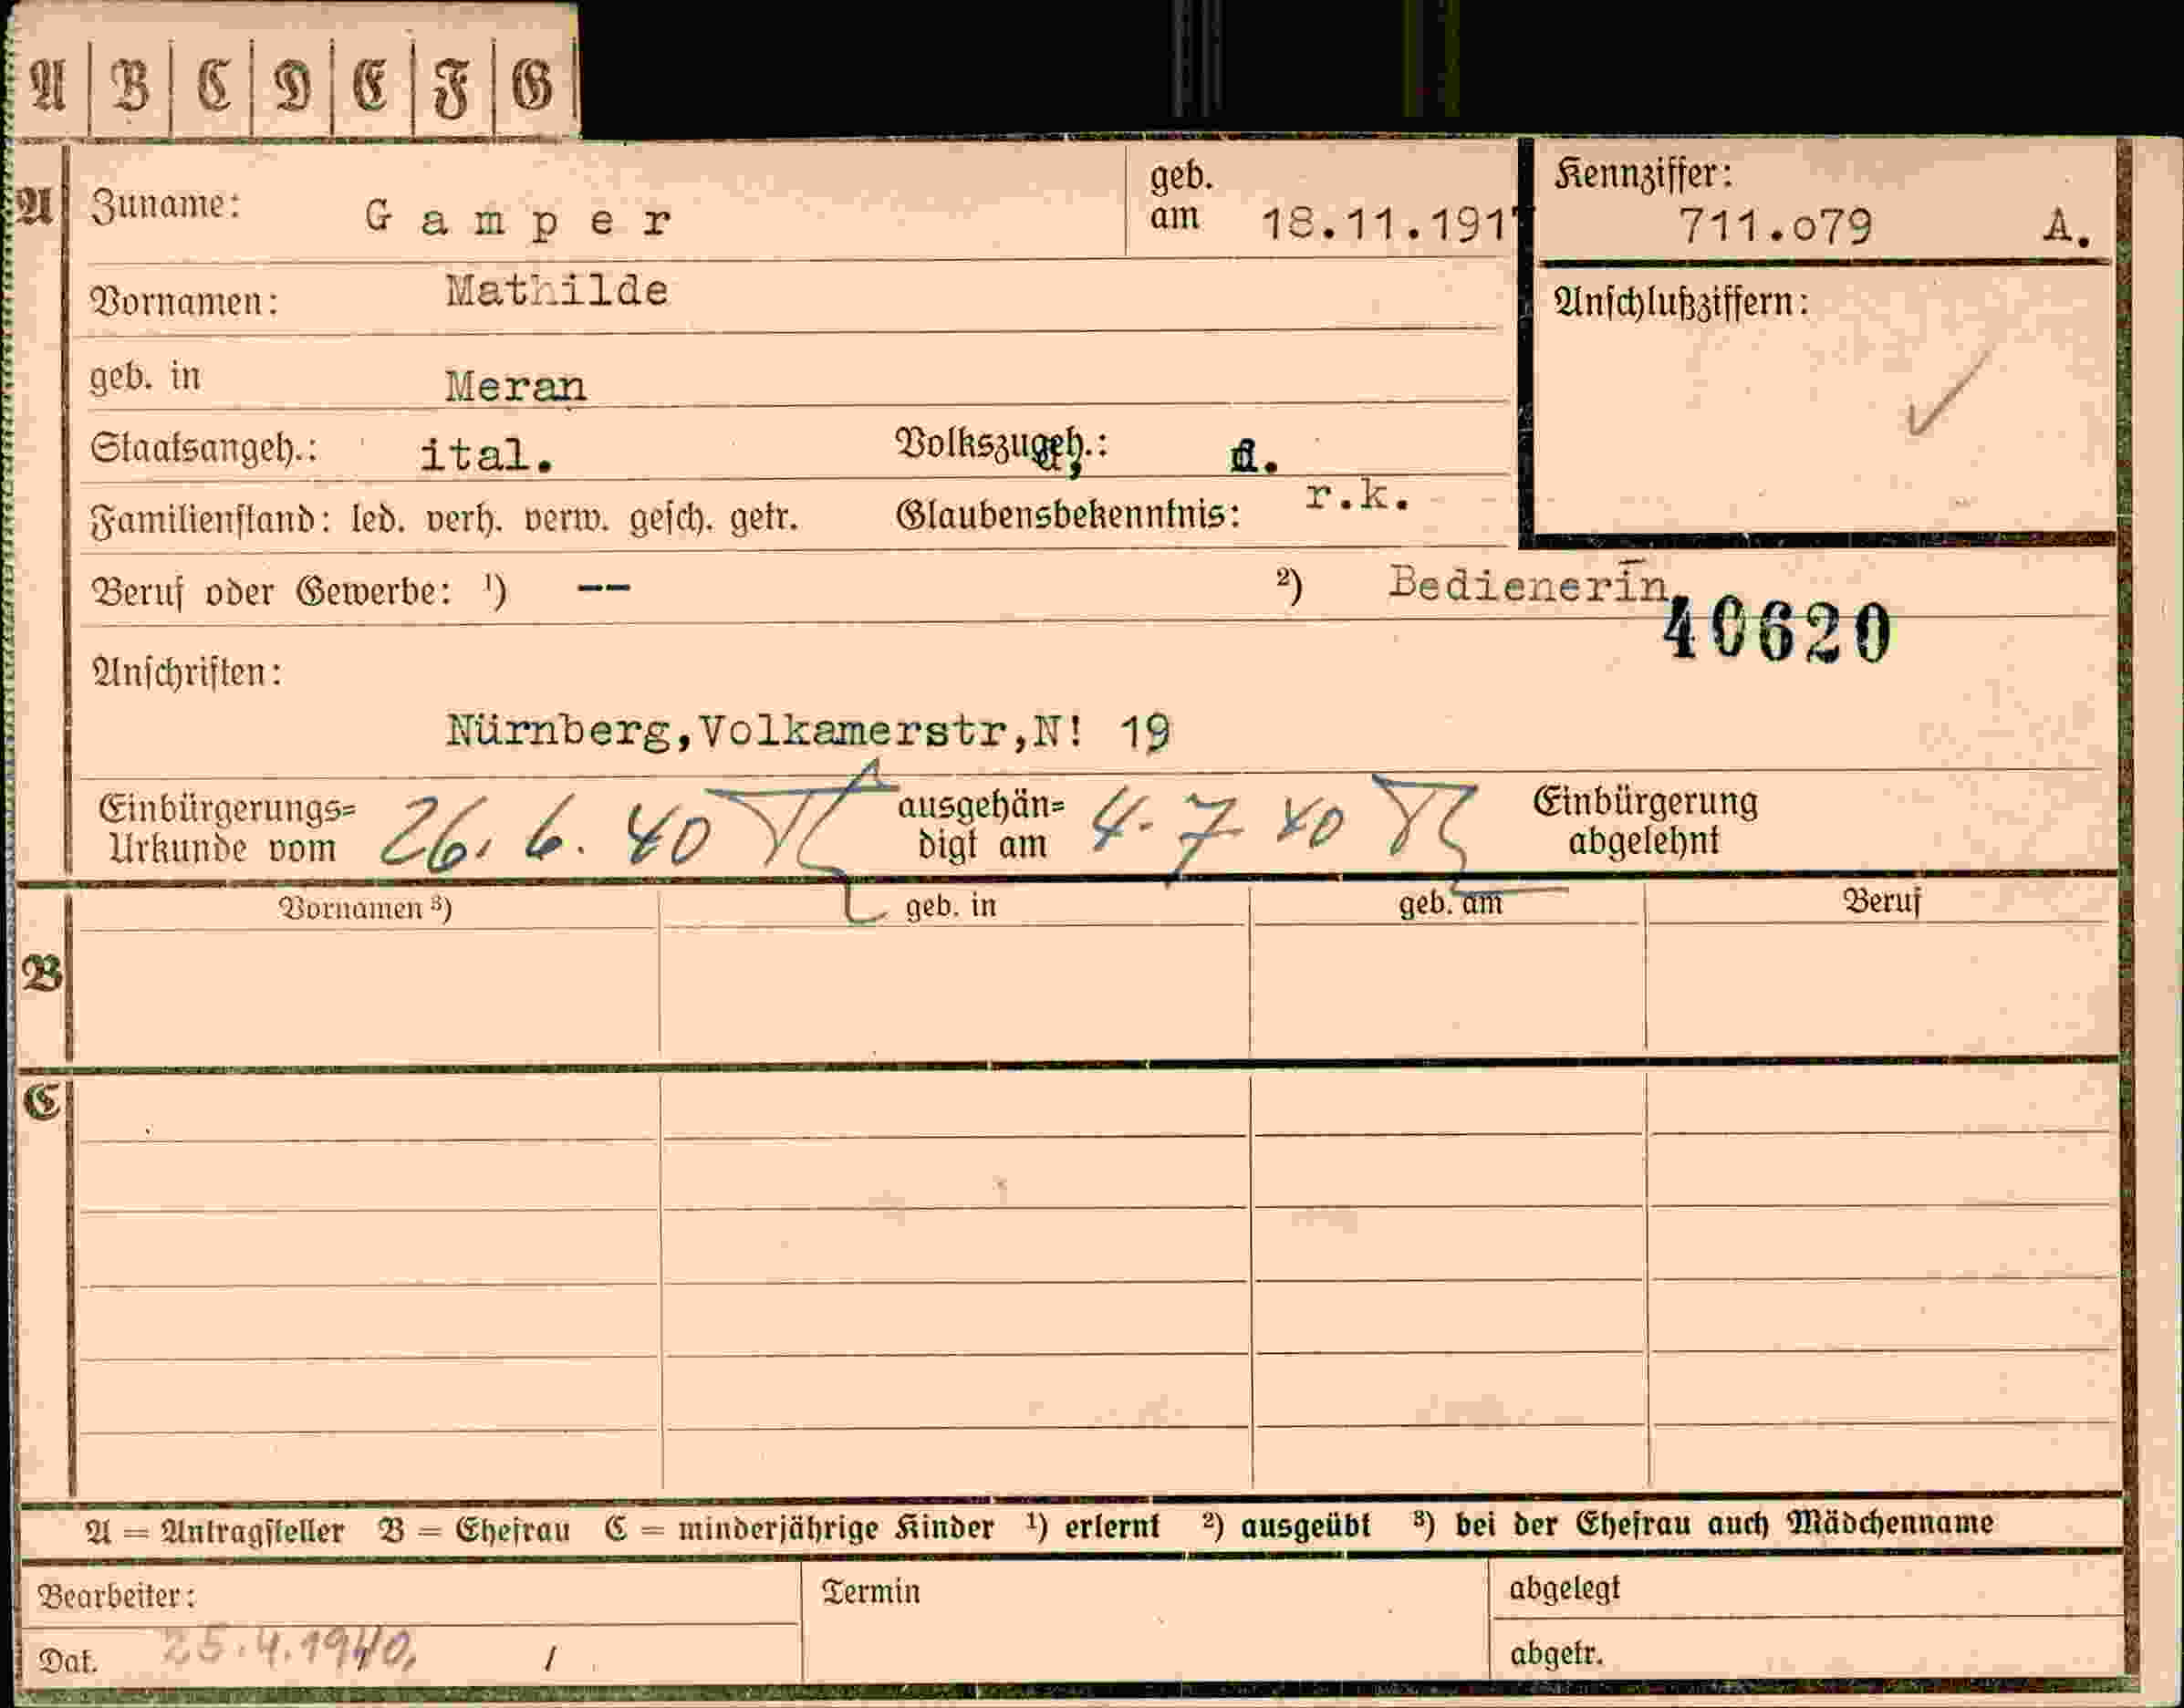 A B C D E F G
A
Zuname: Gamper
geb. am 18.11.1917
Kennziffer: 711.o79 A.
Vornamen: Mathilde
Anschlußziffern:
geb. in Meran
Staatsangeh.: ital. Volkszugeh.: d.
Familienstand: led. verh. verw. gesch. getr. Glaubensbekenntnis: r.k.
Beruf oder Gewerbe: ¹) -- ²) Bedienerin
40620
Anschriften:
Nürnberg,Volkamerstr,N! 19
Einbürgerungs=Urkunde vom 26. 6. 40 ausgehän=digt am 4. 7. 40 Einbürgerung abgelehnt
Vornamen ³) geb. in geb. am Beruf
B
C
A = Antragsteller B = Ehefrau C = minderjährige Kinder ¹) erlernt ²) ausgeübt ³) bei der Ehefrau auch Mädchenname
Bearbeiter: Termin abgelegt
Dat. 25.4.1940, / abgetr.